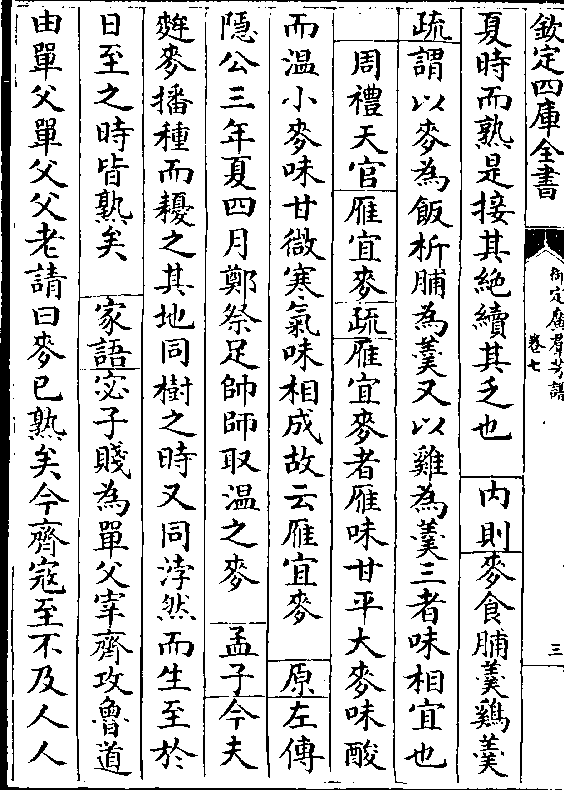 欽定四庫全書
御定廣羣芳譜
卷七
三
夏時而熟是接其絶續其乏也　內則麥食脯羹鷄羹
疏謂以麥為飯析脯為羹又以雞為羹三者味相宜也
周禮天官雁宜麥疏雁宜麥者雁味甘平大麥味酸
而溫小麥味甘微寒氣味相成故云雁宜麥　原左傳
隱公三年夏四月鄭祭足帥師取溫之麥　孟子今夫
麰麥播種而耰之其地同樹之時又同浡然而生至於
日至之時皆熟矣　家語宓子賤為單父宰齊攻魯道
由單父單父父老請曰麥已熟矣今齊寇至不及人人